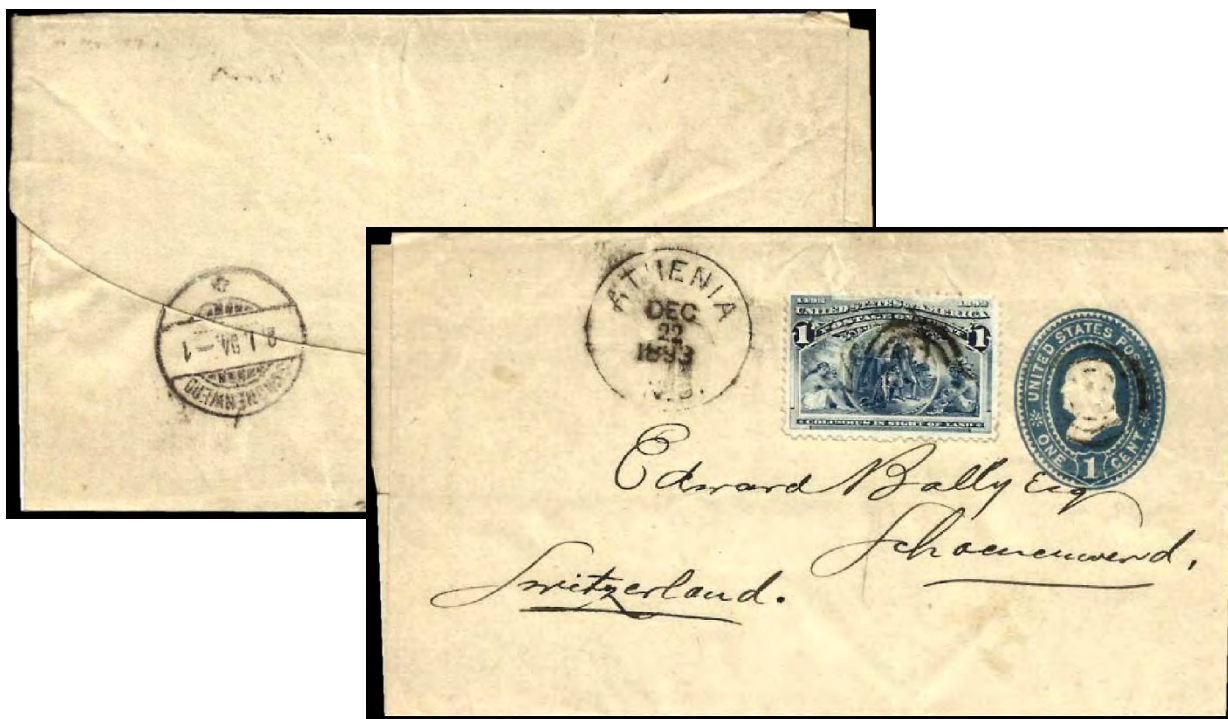 SCHOENENWERD
2.I.94.–1
ATHENIA
DEC
22
1893
N.J.
1492 1892
UNITED STATES OF AMERICA
POSTAGE ONE CENT
1 1
COLUMBUS IN SIGHT OF LAND
UNITED STATES POSTAGE
ONE 1 CENT
Edward Bally Esq
Schoenenwerd,
Switzerland.